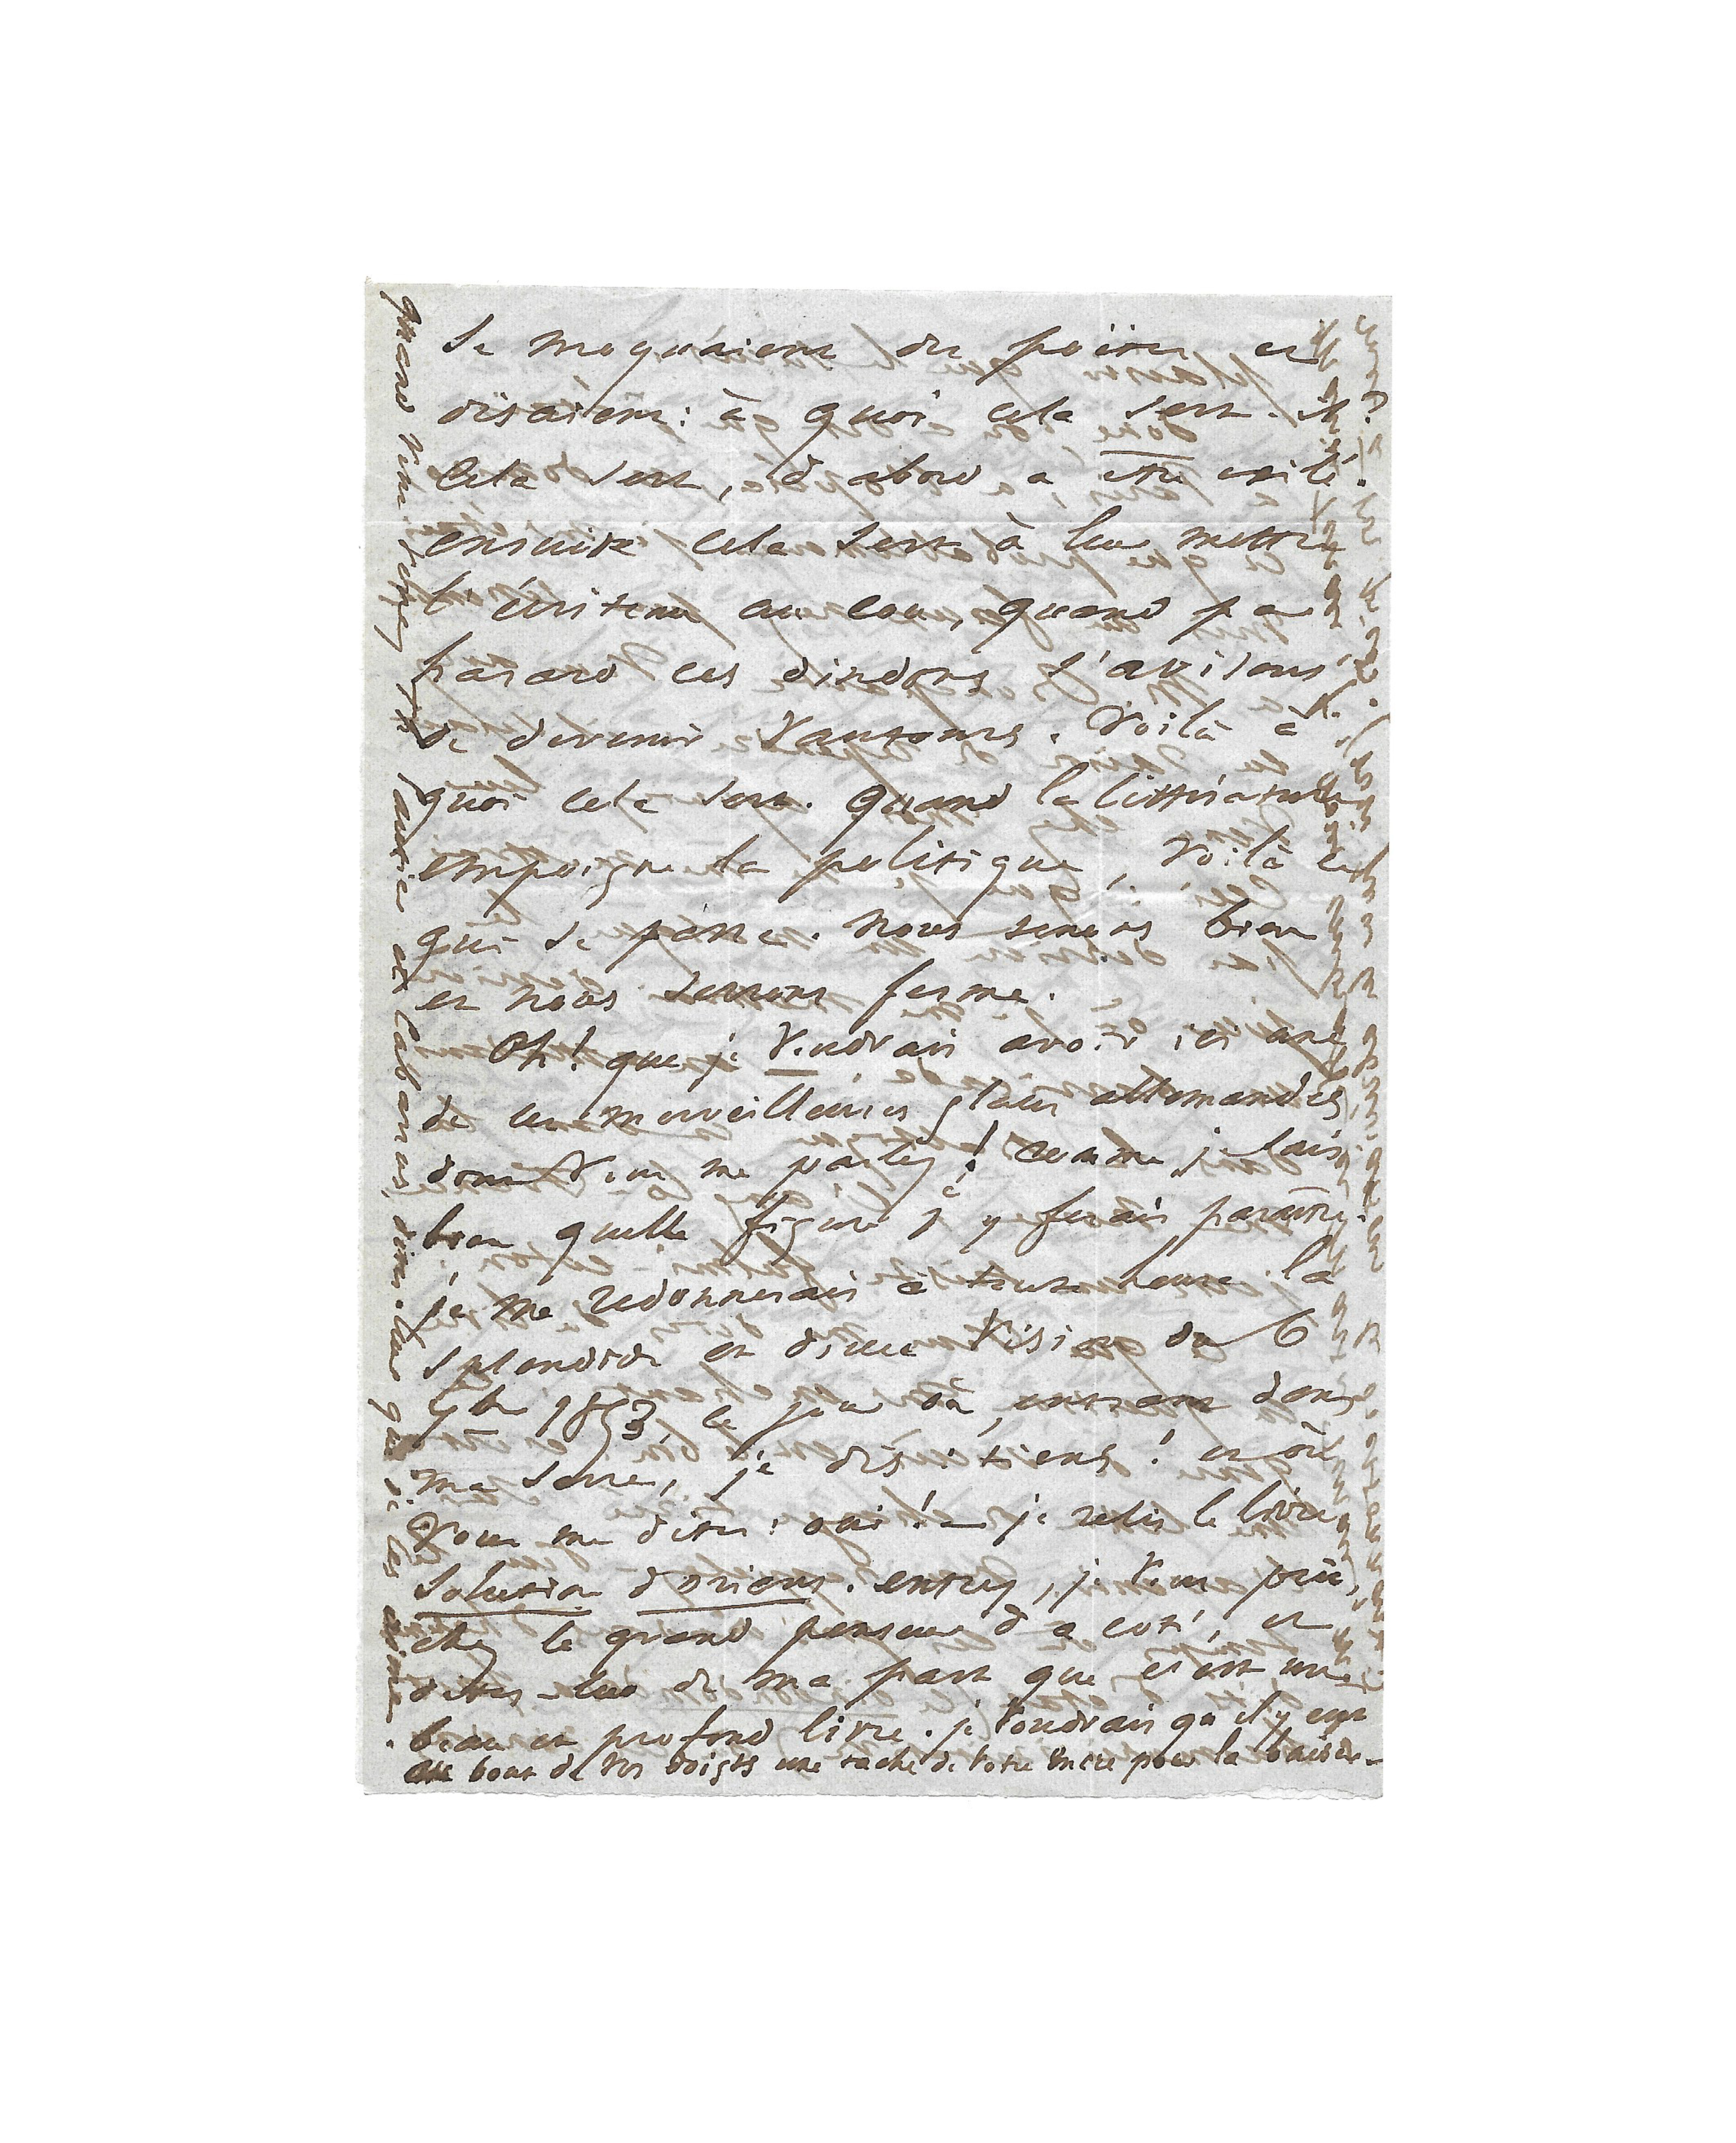 se moquaient du poëte et
disaient : à quoi cela sert-il ?
Cela sert, d'abord à être exilé.
ensuite cela sert à leur mettre
l'écriteau au cou, quand par
hasard ces dindons s'avisent
de devenir vautours. Voilà à
quoi cela sert. Quand la littérature
empoigne la politique, voilà ce
qui se passe. Nous tenons bien
et nous serrons ferme.
Oh ! que je voudrais avoir ici une
de ces merveilleuses glaces allemandes
dont vous me parlez ! Comme je sais
bien quelle figure j'y ferais paraître.
je me redonnerais à toute heure la
splendide et douce vision du 6
7bre 1853 le jour où, entrant dans
ma serre, je dis : tiens ! et où
vous me dîtes : oui ! — je relis le livre
Solution d'orient. entrez, je vous prie,
chez le grand penseur d'à côté, et
dites-lui de ma part que c'est un
beau et profond livre. je voudrais qu'il y eût
au bout de vos doigts une tache de votre encre pour la baiser —
quand vous verrez
et Cabanus, dites-leur que je les aime.